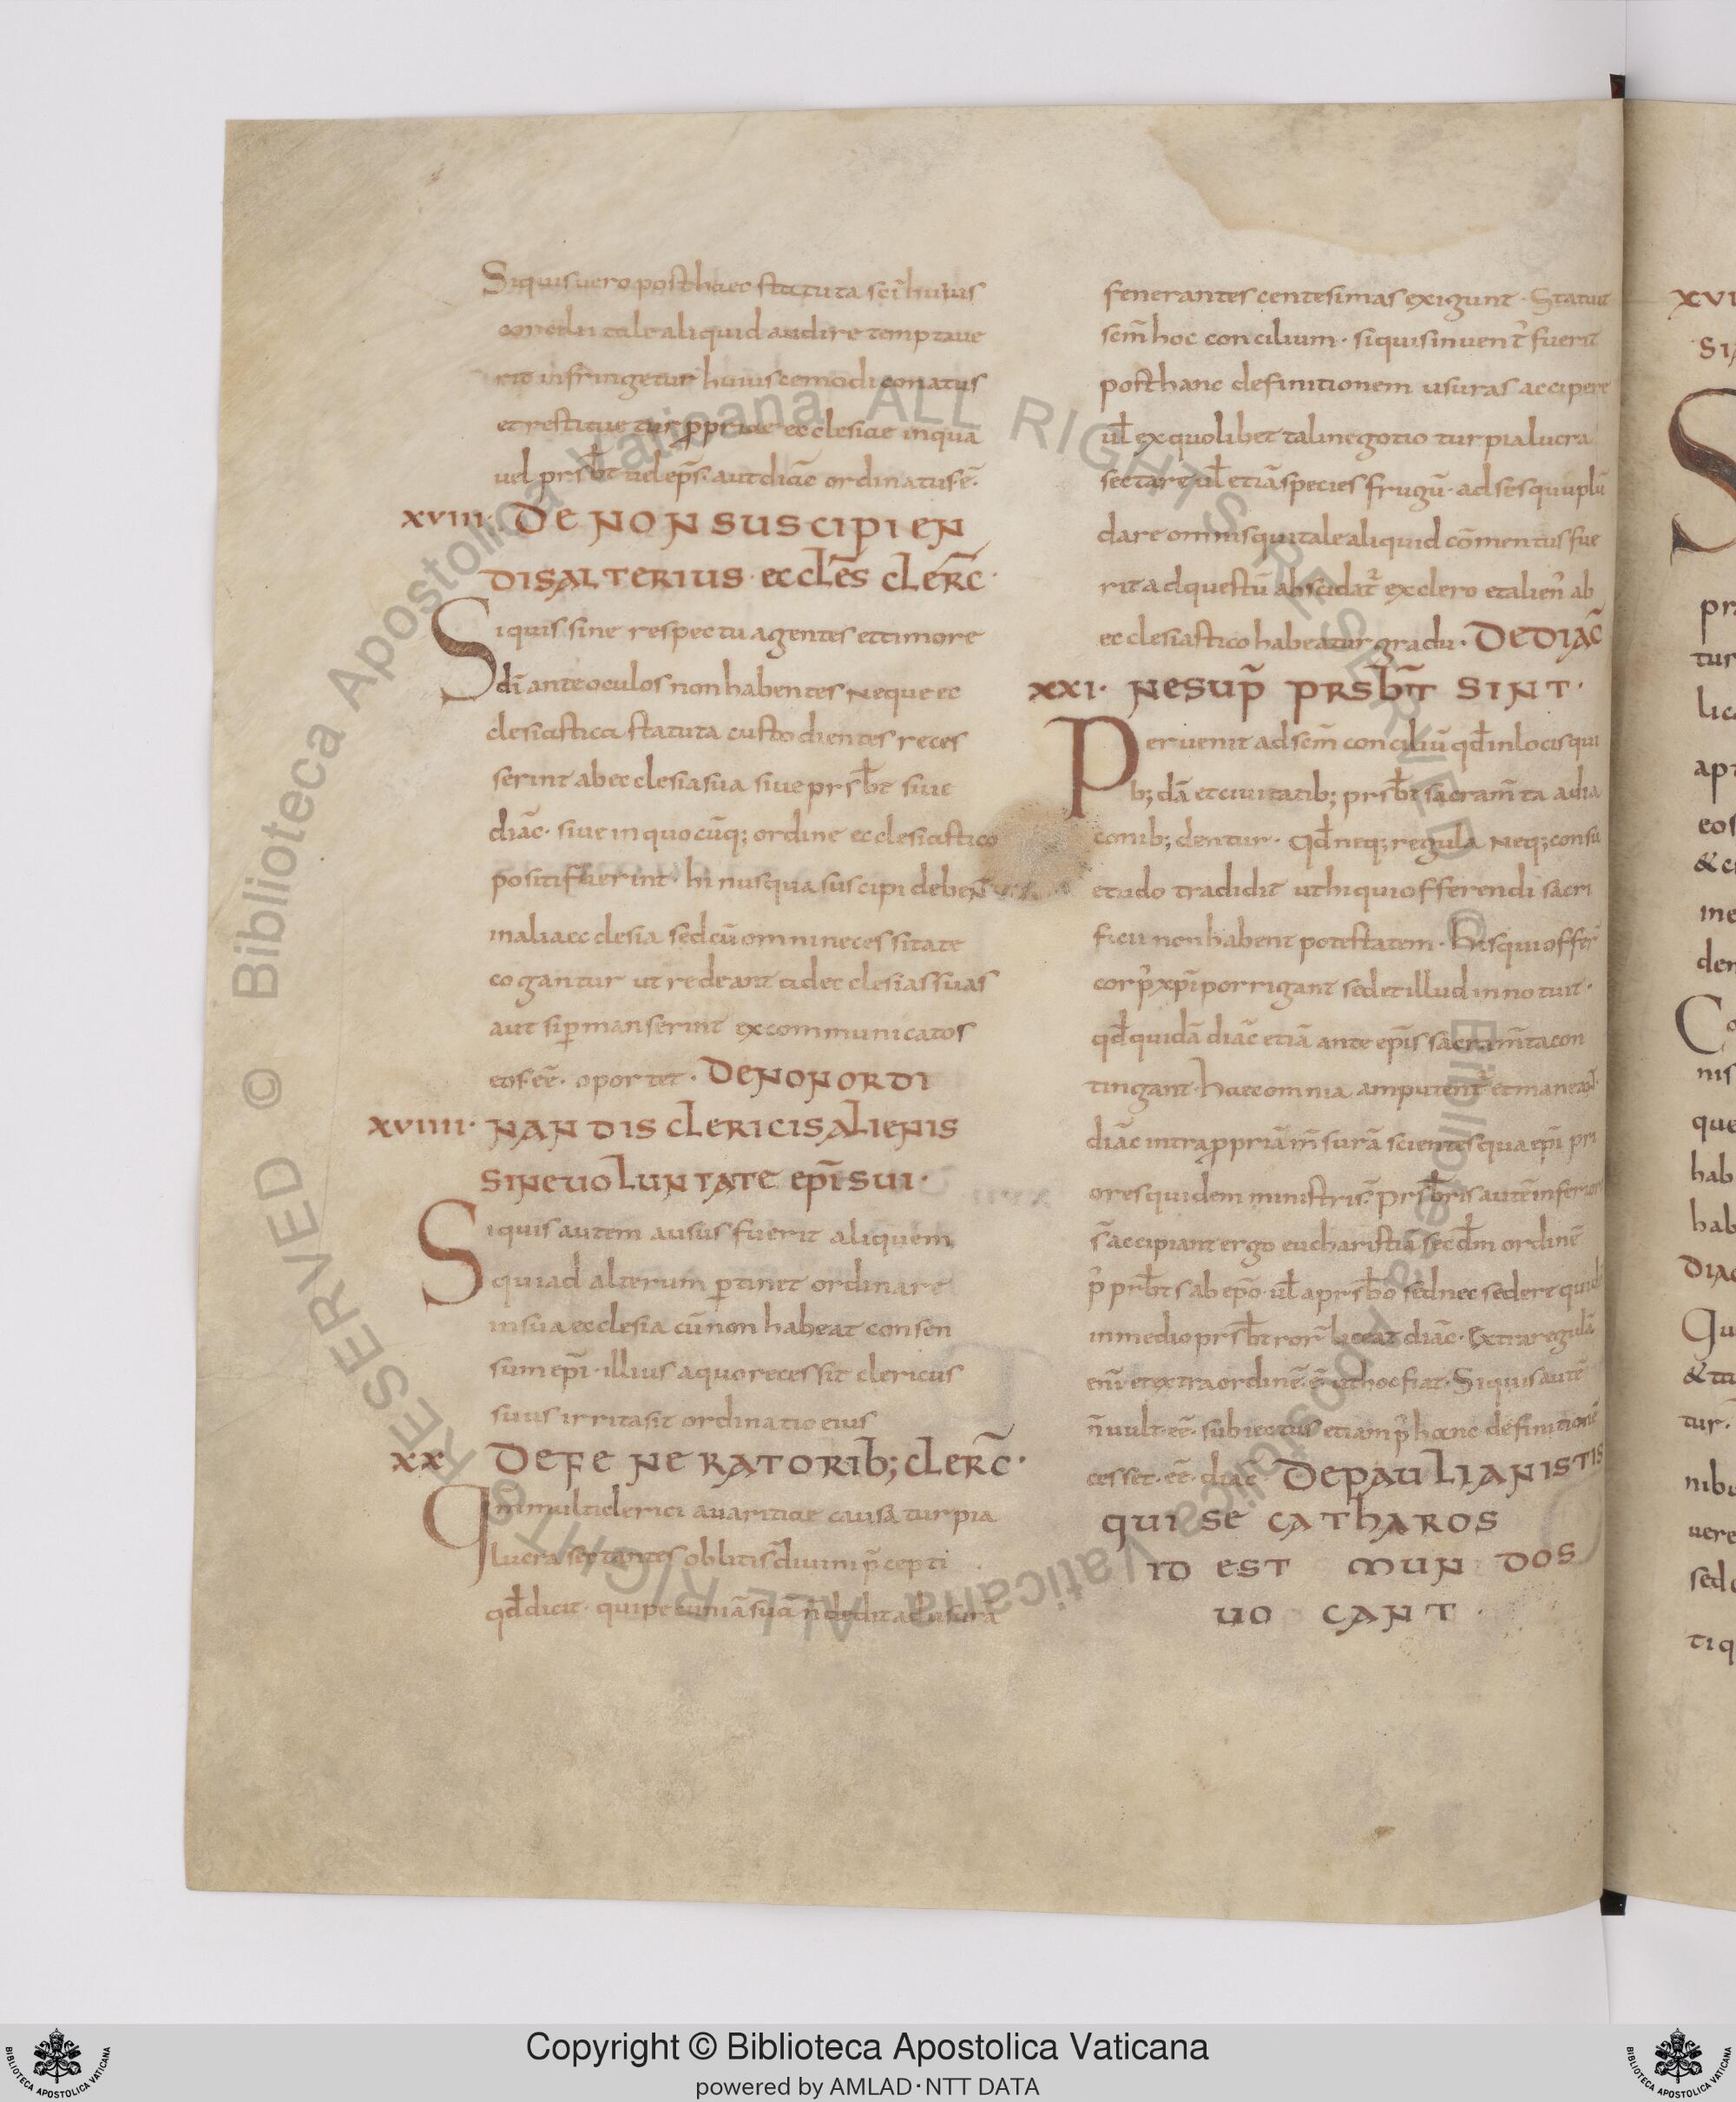 Siquis uero post haec statuta sc̄i huius
concilii tale aliquid audire temptaue
rit infringetur huiuscemodi conatus
et restituetur ꝓpriae ecclesiae in qua
uel prsb̄t uel ep̄s· aut diac̄ ordinatus· ē·
XVIII· DE NON SUSCIPIEN
DIS ALTERIUS· ECCLĒS CLERC̄·
Siquis sine respectu agentes et timore
dī ante oculos non habentes Neque ec
clesiastica statuta custodientes reces
serint ab ecclesia sua siue prsb̄t siue
diāc· siue in quocūq; ordine ecclesiastico
positi fuerint· hi nusqua suscipi deben̄t
in alia ecclesia sed cū omni necessitate
cogantur ut redeant ad ecclesias suas
aut si ꝑmanserint excommunicatos
eos· eē· oportet· DE NON ORDI
XVIIII· NANDIS CLERICIS ALIENIS
SINE UOLUNTATE EPĪ SUI·
Siquis autem ausus fuerit aliquem
qui ad alterum ꝑtinet ordinare
in sua ecclesia cū non habeat consen
sum ep̄i· illius a quo recessit clericus
suus irrita sit ordinatio eius
XX DE FENERATORIB; CLERC̄·
Qm̄ multi clerici auaritiae causa turpia
lucra sectantes oblitis diuini p̄cepti
qd̄ dicit· qui pecuniā suā n̄ dedit ad usurā
fenerantes centesimas exigunt· Statuit
scm̄ hoc concilium· siquis inuent᾿ fuerit
post hanc definitionem usuras accipere
ul̄ ex quolibet tali negotio turpia lucra
sectare ul̄ etiā species frugū· ad sesquuplū
dare omnis qui tale aliquid cōmentus fue
rit ad questū abscidat᾿ ex clero et alien᾿ ab
ecclesiastico habeatur gradu· DE DIAC̄
XXI· NE SUP̄ PRSB̄T SINT·
Peruenit ad scm̄ conciliū qd̄ in locis qui
b; dā et ciuitatib; prsb̄t sacram̄ta a dia
conib; dentur· qd̄ neq; regula Neq; consu
etudo tradidit ut hi qui offerendi sacri
ficii non habent potestatem· His qui offer̄
corp᾿ xp̄i porrigant sed et illud innotuit·
qd̄ quidā diāc etiā ante ep̄is sacram̄ta con
tingant· haec omnia amputent᾿ et maneant
diāc intra ꝓpriā m̄surā scientes qua ep̄i pri
ores quidem ministris᾿ prsb̄ris autē inferior
s̄ accipiant ergo eucharistiā secd̄m ordinē
p᾿ prb̄ts ab ep̄o· ul̄ a prsb̄o sed nec sedere quid
in medio prsb̄tror̄ liceat diāc· Extra regulā
enī et extra ordinē· ē ut hoc fiat· Siquis autē
n̄ uult· eē· subiectus etiam p᾿ hanc definitionē
cesset· eē· diāc DE PAULIANISTIS
QUI SE CATHAROS
ID EST MUNDOS
UOCANT·
XVI
SI
S
pr
tus
lic
apt
eos
& c
me
den
Co
nis
que
hab
hab
DIAC
Qu
& tu
tur·
nibu
uere
sed
ti q
© Biblioteca Apostolica Vaticana ALL RIGHTS RESERVED © Biblioteca Apostolica Vaticana ALL RIGHTS RESERVED
Copyright © Biblioteca Apostolica Vaticana
powered by AMLAD·NTT DATA
BIBLIOTECA APOSTOLICA VATICANA
BIBLIOTECA APOSTOLICA VATICANA